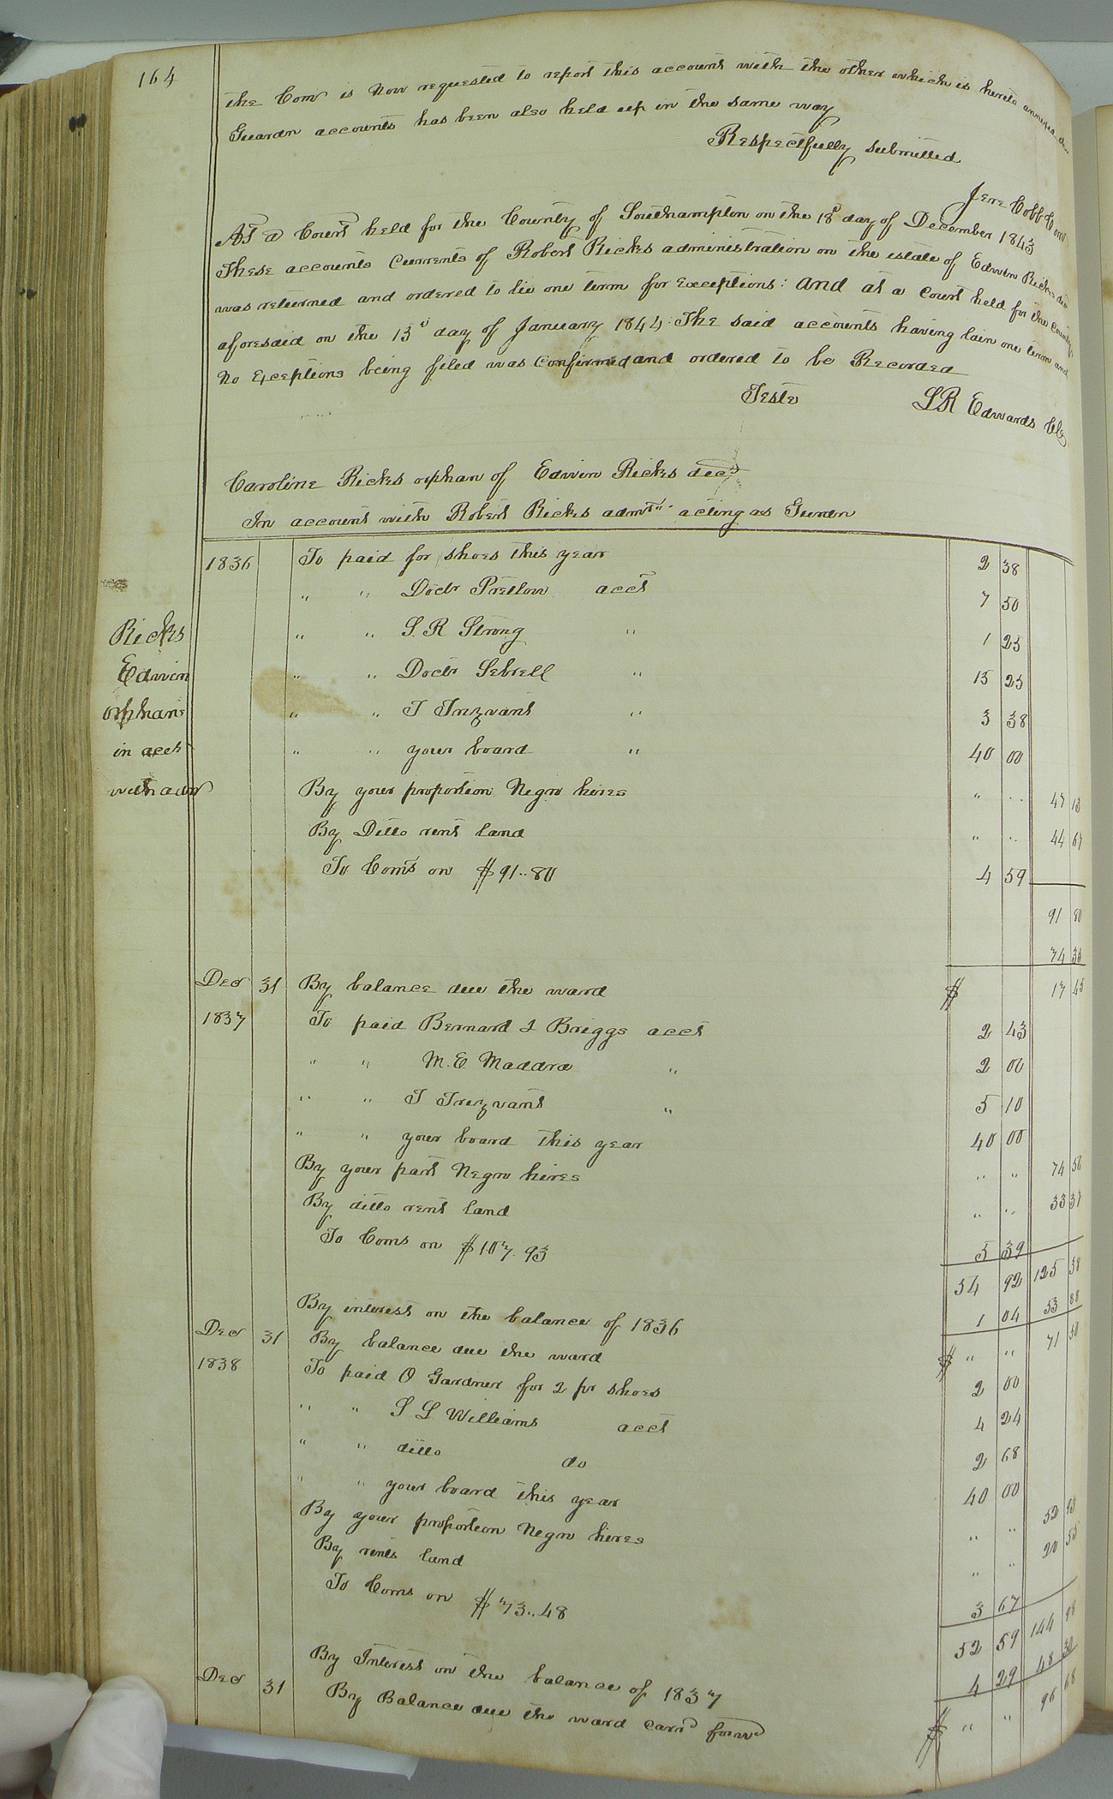 164
the Com is now requested to report this account with the other which is hereto annexed the
Guardn accounts has been also held up in the same way
Respectfully submitted
Jere Cobb Com
At a Court held for the County of Southampton on the 18th day of December 1843
These accounts Currents of Robert Ricks administration on the estate of Edwin Ricks dec
was returned and ordered to lie one term for exceptions: and at a Court held for the County
aforesaid on the 15th day of January 1844. The said accounts having lain one term and
No Exceptions being filed was Confirmed and ordered to be Recorded
Teste L R Edwards Clk
Caroline Ricks orphan of Edwin Ricks decd
In account with Robert Ricks admtr acting as Guardn
Ricks
Edwin
orphans
in acct
with admr
1836 To paid for shoes this year 2 38
" " Doctr Pretlow acct 7 50
" " S. R Strong " 1 25
" " Doctr Sebrell " 15 25
" " T Trezvant " 3 38
" " your board " 40 00
By your proportion Negro hires " " 47 13
By Ditto rent land " " 44 67
To Coms on $91..80 4 59
91 80
74 35
Decr 31 By balance due the ward $ 17 45
1837 To paid Bernard I Briggs acct 2 43
" " M. E Maddra " 2 00
" " T Trezvant " 5 10
" " your board this year 40 00
By your part Negro hires " " 74 56
By ditto rent land " " 33 37
To Coms on $107.93 5 39
54 92 125 38
By interest on the balance of 1836 1 04 53 88
Decr 31 By balance due the ward $ " " 71 50
1838 To paid O Gardner for 2 pr shoes 2 00
" " S L Williams acct 4 24
" " ditto do 2 68
" " your board this year 40 00
By your proportion Negro hires " " 52 93
By rents land " " 20 55
To Coms on $73..48 3 67
52 59 144 98
By Interest on the balance of 1837 4 29 48 30
Decr 31 By Balance due the ward card forwd $ " " 96 68